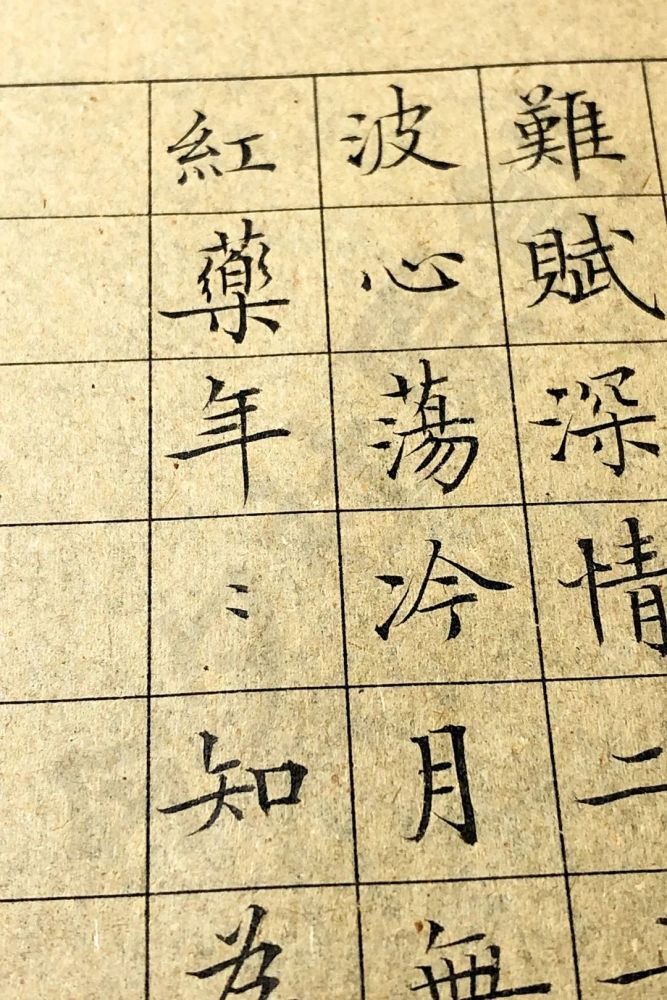 難賦深情二
波心蕩冷月無
紅藥年〻知為